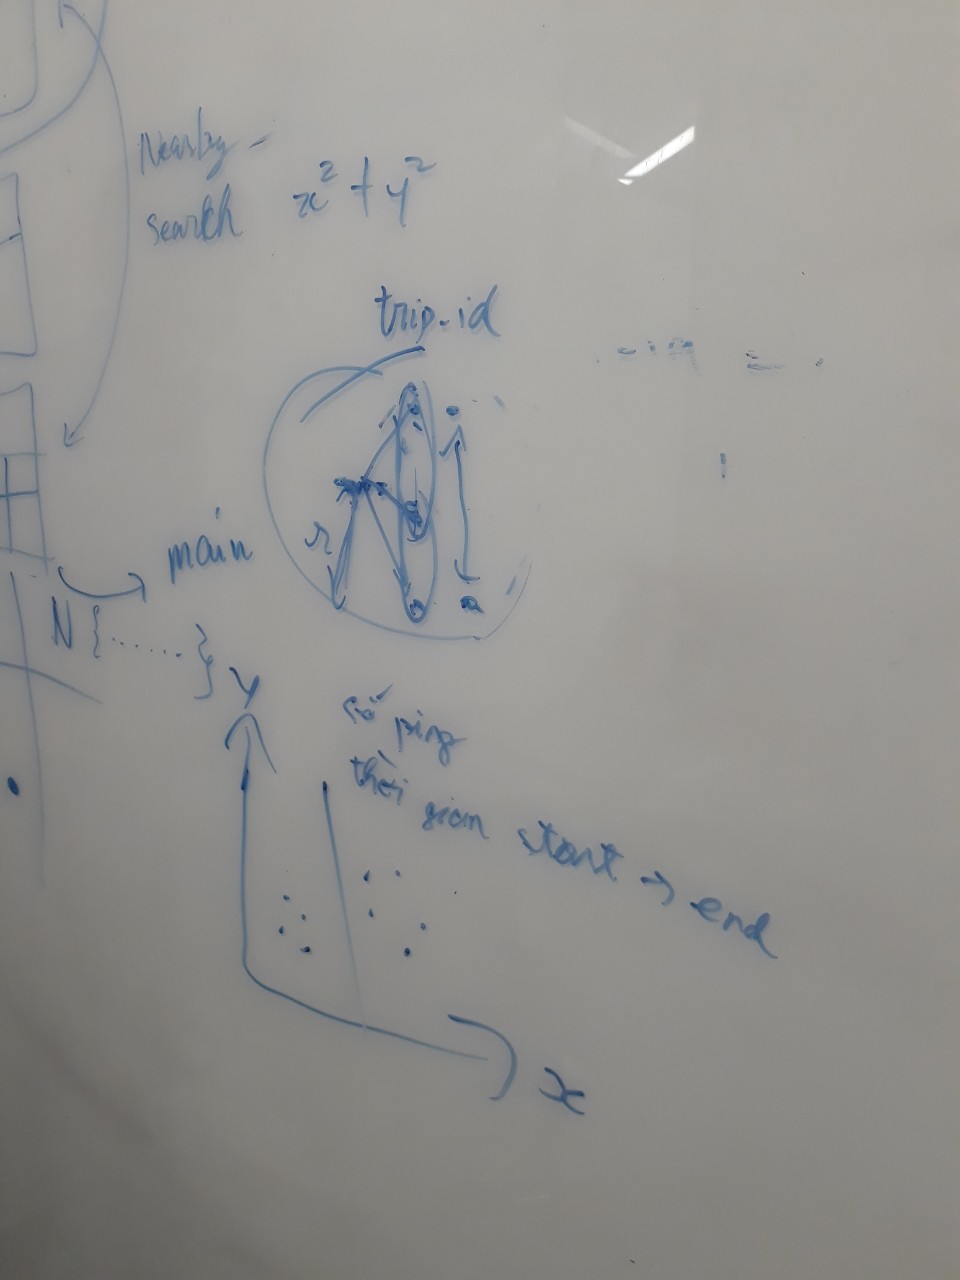 Nearby
search x² + y²
trip-id
r
main
N {......}
y
số ping
thời gian start → end
x